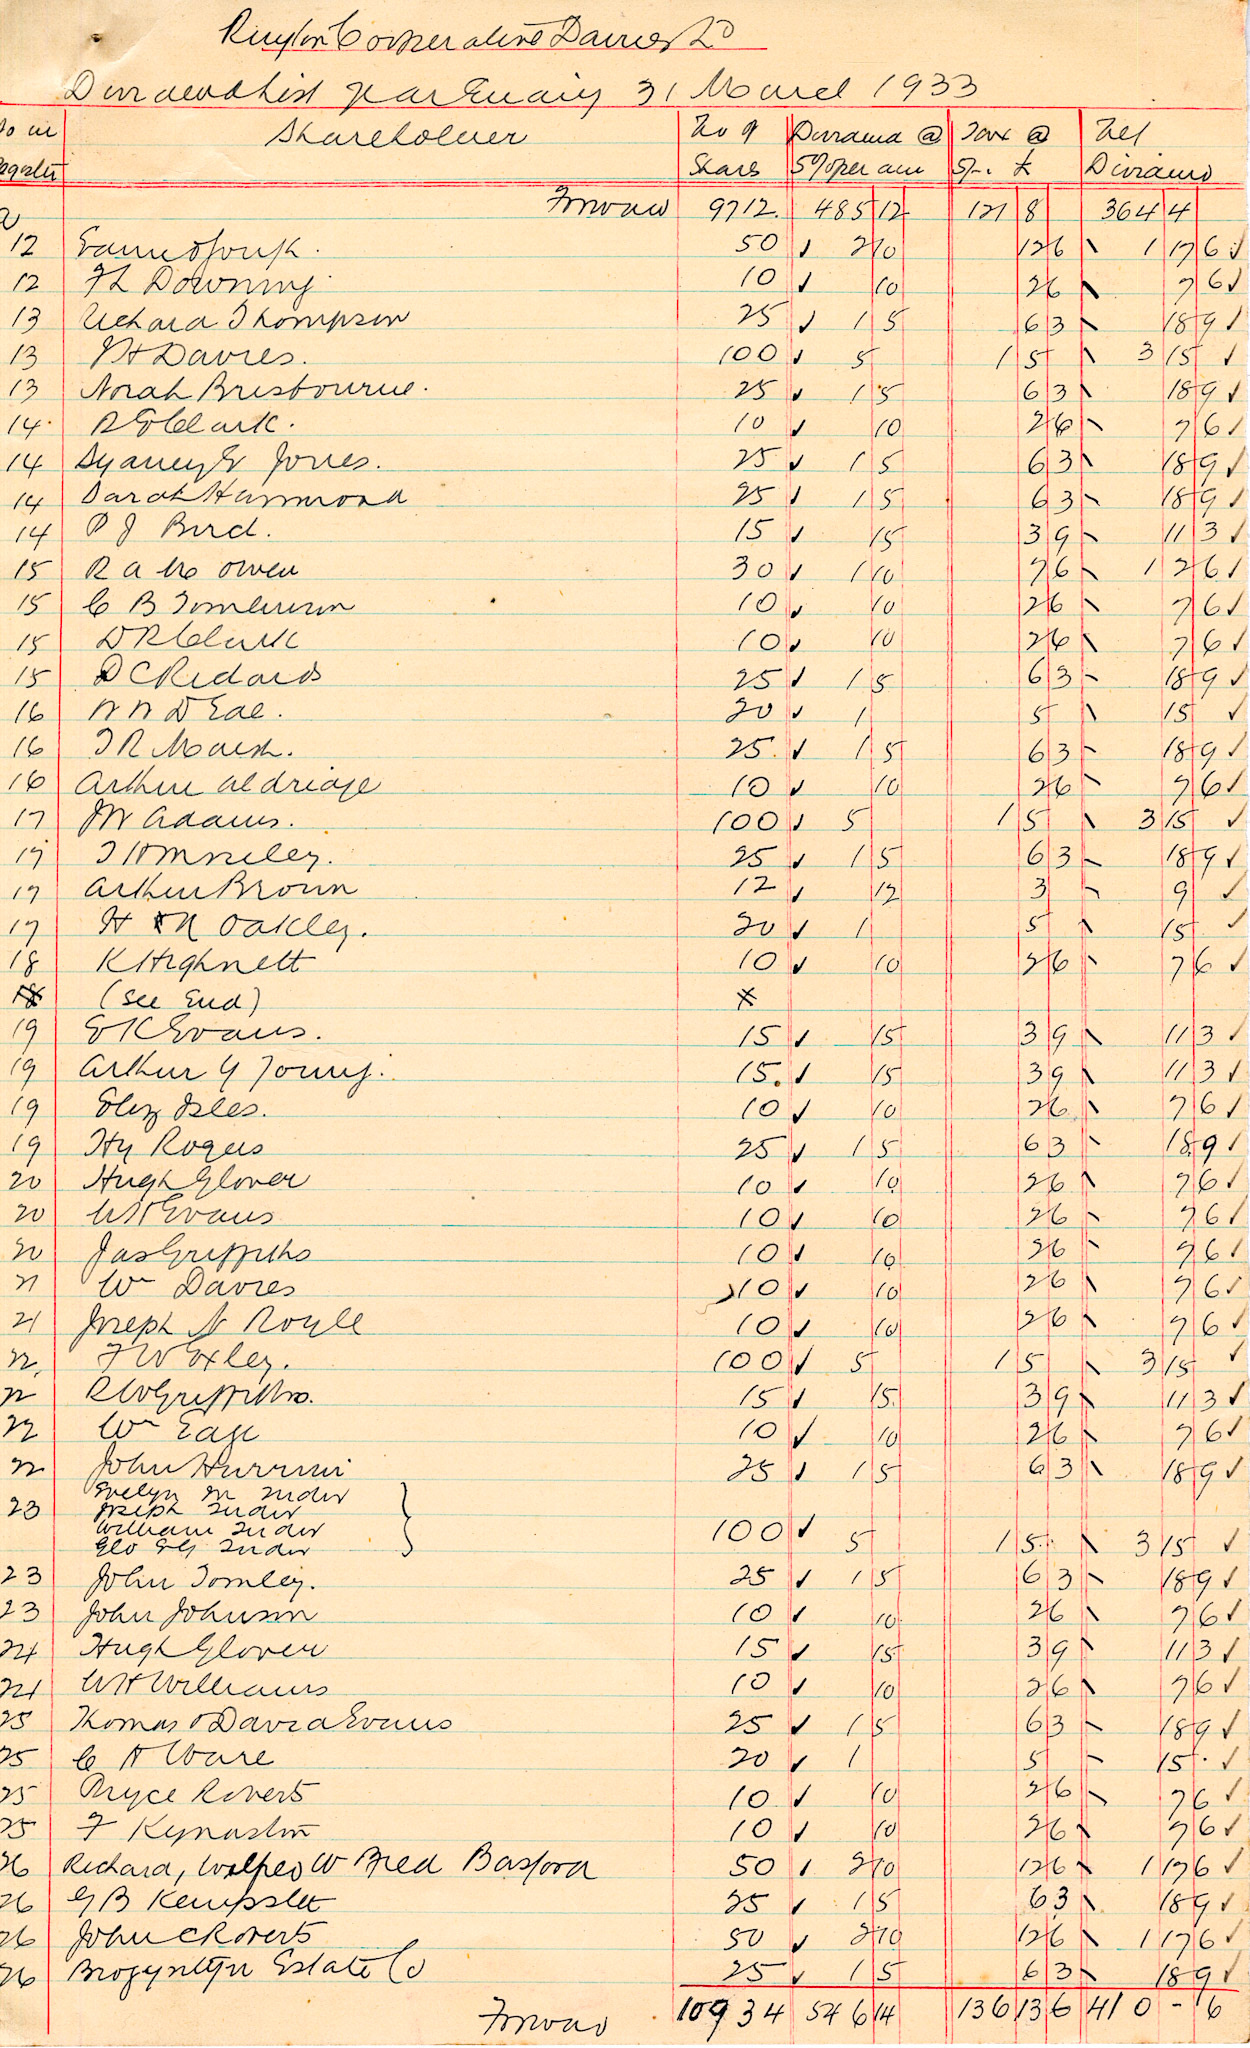 Ruyton Cooperative Dairies Ld
Dividend List year Ending 31 March 1933
No in Register Shareholder No of Shares Dividend @ 5% per ann Tax @ 5/- £ Net Dividend
Forward 9712. 485 12 121 8 364 4
12 50 ✓ 2 10 12 6 1 17 6 ✓
12 Downing 10 ✓ 10 2 6 7 6 ✓
13 Richard Thompson 25 ✓ 1 5 6 3 18 9 ✓
13 Davies. 100 ✓ 5 1 5 3 15 ✓
13 Norah Brisbourne. 25 ✓ 1 5 6 3 18 9 ✓
14 R G Clark. 10 ✓ 10 2 6 7 6 ✓
14 Sydney G Jones. 25 ✓ 1 5 6 3 18 9 ✓
14 Sarah Hammond 25 ✓ 1 5 6 3 18 9 ✓
14 P J Bird. 15 ✓ 15 3 9 11 3 ✓
15 R A Owen 30 ✓ 1 10 7 6 1 2 6 ✓
15 C B Tomlinson 10 ✓ 10 2 6 7 6 ✓
15 D R Clark 10 ✓ 10 2 6 7 6 ✓
15 D C Richards 25 ✓ 1 5 6 3 18 9 ✓
16 20 ✓ 1 5 15 ✓
16 T R March. 25. ✓ 1 5 6 3 18 9 ✓
16 Arthur Aldridge 10 ✓ 10 2 6 7 6 ✓
17 JW Adams. 100 ✓ 5 1 5 3 15 ✓
17 25 ✓ 1 5 6 3 18 9 ✓
17 Arthur Brown 12 ✓ 12 3 9 ✓
17 H & N Oakley. 20 ✓ 1 5 15 ✓
18 K Highnett 10 ✓ 10 2 6 7 6 ✓
18 (See End) x
19 E K Evans. 15 ✓ 15 3 9 11 3 ✓
19 Arthur G Young. 15. ✓ 15 3 9 11 3 ✓
19 Eliz Isles. 10 ✓ 10 2 6 7 6 ✓
19 Hy Rogers 25 ✓ 1 5 6 3 18 9 ✓
20 Hugh Glover 10 ✓ 10 2 6 7 6 ✓
20 W H Evans 10 ✓ 10 2 6 7 6 ✓
20 Jas Griffiths 10 ✓ 10 2 6 7 6 ✓
21 Wm Davies 10 ✓ 10 2 6 7 6 ✓
21 Joseph N Royle 10 ✓ 10 2 6 7 6 ✓
22. F W Oxley. 100 ✓ 5 1 5 3 15 ✓
22 R W Griffiths. 15 ✓ 15 3 9 11 3 ✓
22 Wm Edge 10 ✓ 10 2 6 7 6 ✓
22 John 25 ✓ 1 5 6 3 18 9 ✓
Evelyn M Tudor
23 Joseph Tudor
William Tudor 100 ✓ 5 1 5 3 15 ✓
Geo Tudor
23 John Tomley. 25 ✓ 1 5 6 3 18 9 ✓
23 John Johnson 10 ✓ 10 2 6 7 6 ✓
24 Hugh Glover 15 ✓ 15 3 9 11 3 ✓
24 W H Williams 10 ✓ 10 2 6 7 6 ✓
25 Thomas & David Evans 25 ✓ 1 5 6 3 18 9 ✓
25 C H Ware 20 ✓ 1 5 15 ✓
25 Pryce Roberts 10 ✓ 10 2 6 7 6 ✓
25 F Kynaston 10 ✓ 10 2 6 7 6 ✓
26 Richard, Wilfred W Fred Basford 50 ✓ 2 10 12 6 1 17 6 ✓
26 G B Kempster 25 ✓ 1 5 6 3 18 9 ✓
26 John C Roberts 50 ✓ 2 10 12 6 1 17 6 ✓
26 Brogyntyn Estate Co 25 ✓ 1 5 6 3 18 9 ✓
Forward 10934 546 14 136 13 6 410 - 6